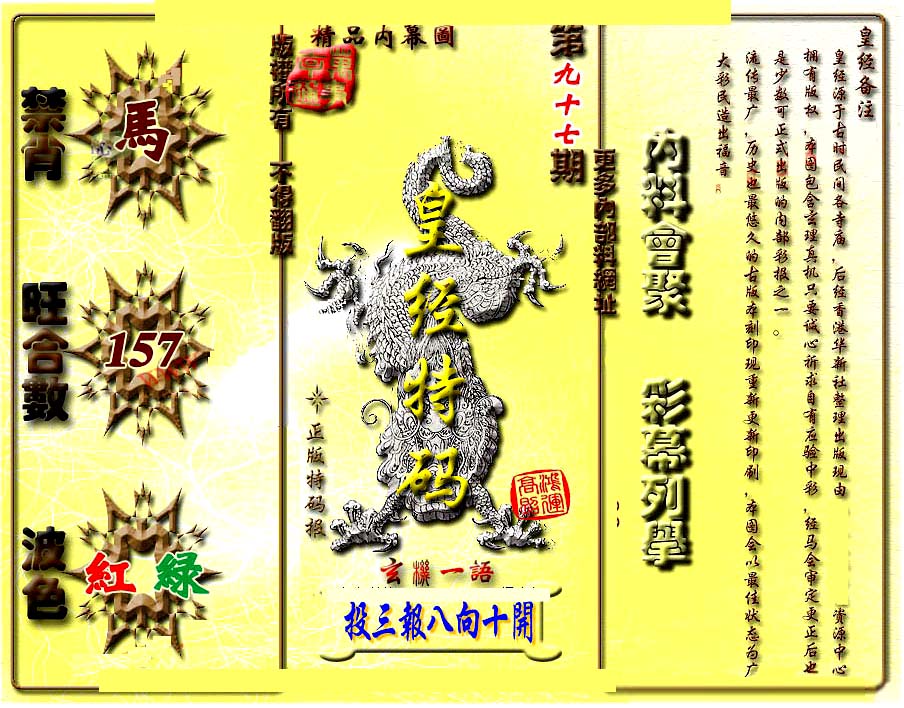 皇经备注
皇经源于古时民间各寺庙，后经香港华新社整理出版现由 资源中心
拥有版权，本图包含玄理真机只要诚心祈求自有应验中彩，经马会审定更正后也
是少数可正式出版的内部彩报之一。
流传最广，历史也最悠久的古版本刻印现重新更新印刷，本图会以最佳状态为广
大彩民造出福音
內料會聚
彩幕列舉
更多內部料網址
第九十七期
精品内幕圖
版權所有 不得翻版
皇经特码
正版特码报
鴻運
高照
玄機一語
投三報八向十開
禁肖
馬
旺合數
157
波色
紅 綠